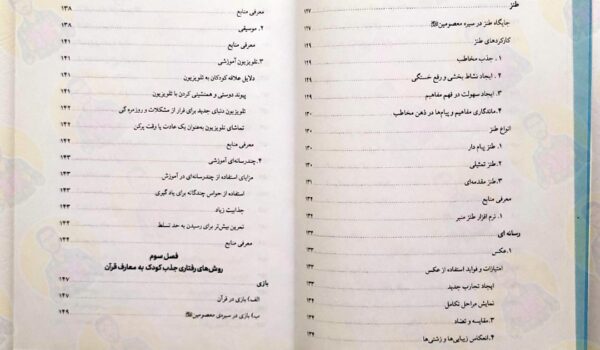 طنز ۱۲۷
جایگاه طنز در سیره معصومین ۱۲۷
کارکردهای طنز ۱۲۹
۱. جذب مخاطب ۱۲۹
۲. ایجاد نشاط بخشی و رفع خستگی ۱۲۹
۳. ایجاد سهولت در فهم مفاهیم ۱۲۹
۴. ماندگاری مفاهیم و پیام‌ها در ذهن مخاطب ۱۳۰
انواع طنز ۱۳۰
۱. طنز پیام دار ۱۳۰
۲. طنز تمثیلی ۱۳۰
۳. طنز مقدمه‌ای ۱۳۱
معرفی منابع ۱۳۲
۱. نرم افزار طنز منبر ۱۳۲
رسانه ای ۱۳۳
۱. عکس ۱۳۳
امتیازات و فواید استفاده از عکس ۱۳۳
ایجاد تجارب جدید ۱۳۳
نمایش مراحل تکامل ۱۳۴
۳. مقایسه و تضاد ۱۳۴
۴. انعکاس زیبایی‌ها و زشتی‌ها ۱۳۴
معرفی منابع ۱۳۸
۲. موسیقی ۱۳۸
معرفی منابع ۱۴۱
۳. تلویزیون آموزشی ۱۴۱
دلایل علاقه کودکان به تلویزیون ۱۴۱
پیوند دوستی و همنشینی کردن با تلویزیون ۱۴۲
تلویزیون دنیای جدید برای فرار از مشکلات و روزمره گی ۱۴۲
تماشای تلویزیون به‌عنوان یک عادت یا وقت پرکن ۱۴۲
معرفی منابع ۱۴۲
۴. چندرسانه‌ای آموزشی ۱۴۳
مزایای استفاده از چندرسانه‌ای در آموزش ۱۴۳
استفاده از حواس چندگانه برای یاد گیری ۱۴۳
جذابیت زیاد ۱۴۳
تمرین بیش‌تر برای رسیدن به حد تسلط ۱۴۴
معرفی منابع ۱۴۴
فصل سوم
روش‌های رفتاری جذب کودک به معارف قرآن
بازی ۱۴۷
الف) بازی در قرآن ۱۴۷
ب) بازی در سیره‌ی معصومین ۱۴۹